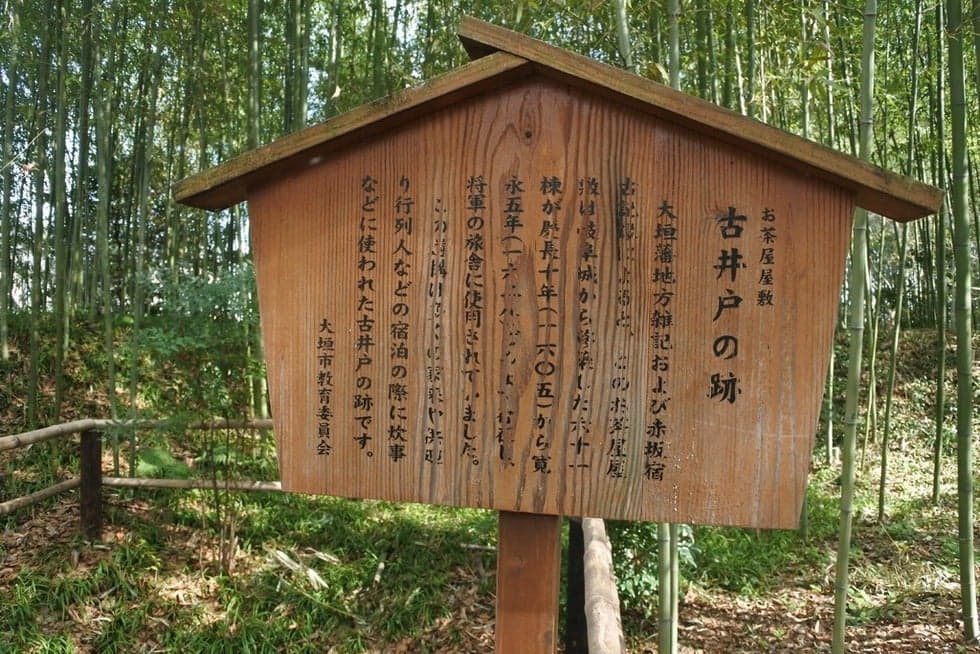 お茶屋屋敷
古井戸の跡
大垣藩地方雑記および赤坂宿
このお茶屋屋
敷は岐阜城から移築した六十一
棟が慶長十年(一六〇五)から寛
永五年(一六
将軍の旅舎に使用されていました。
この
り行列人などの宿泊の際に炊事
などに使われた古井戸の跡です。
大垣市教育委員会